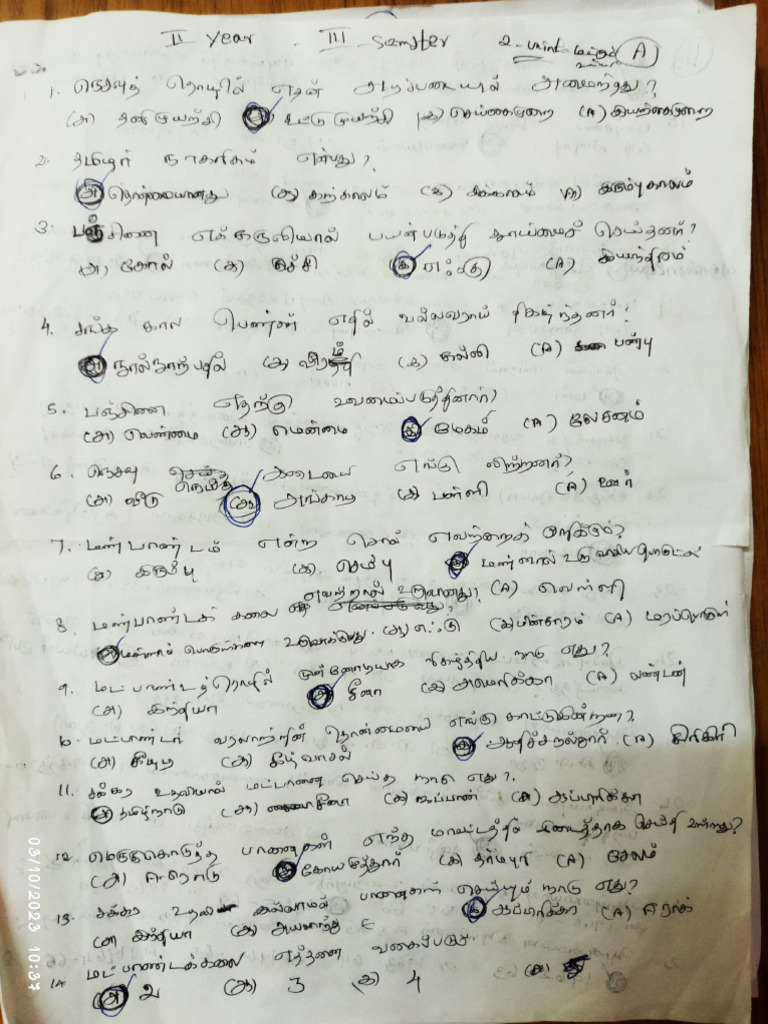 II Year . III Semster 2 - unit A
1. நெசவுத் தொழில் எதன் அடிப்படையில் அமைந்தது?
(அ) தனிமுயற்சி கூட்டு முயற்சி (இ) செய்கைமுறை (A) இயற்கைமுறை
2. தமிழர் நாகரிகம் என்பது?
(அ) தொன்மையானது (ஆ) கற்காலம் (இ) இக்காலம் (A)
3. பஞ்சினை எக்கருவியால் பயன்படுத்தி தூய்மைச் செய்தனர்?
(அ) கோல் (ஆ) (இ) எஃகு (A) இயந்திரம்
4. சங்க கால பெண்கள் எதில் வல்லவராய் திகழ்ந்தனர்?
(அ) நூல்நூற்பதில் (ஆ) (இ) கல்வி (A) பண்பு
5. பஞ்சினை எதற்கு உவமைப்படுத்தினார்?
(அ) வெண்மை (ஆ) மென்மை (இ) மேகம் (A)
6. நெசவு நெய்த கடையை எங்கு விற்றனர்?
(அ) வீடு (ஆ) அங்காடி (இ) பள்ளி (A) ஊர்
7. மண்பாண்டம் என்ற சொல் எவற்றைக் குறிக்கும்?
(அ) கரும்பு (ஆ) செம்பு (இ) மண்ணால் உருவாகிய பொருட்கள்
(A) வெள்ளி
8. மண்பாண்டக் கலை எவற்றால் உருவானது?
(அ) மண்ணால் பொருள்களை உருவாக்குவது (ஆ) எஃகு (இ) மின்சாரம் (A) மரப்பொருள்
9. மட்பாண்டத்தொழில் முன்னோடியாக திகழ்ந்திய நாடு எது?
(அ) இந்தியா (ஆ) சீனா (இ) அமெரிக்கா (A) லண்டன்
10. மட்பாண்ட வரலாற்றின் தொன்மையை எங்கு காட்டுகின்றன?
(அ) கீழடி (ஆ) கீழ்வாசல் (இ) ஆதிச்சநல்லூர் (A)
11. சக்கர உதவியால் மட்பானை செய்த நாடு எது?
(அ) தமிழ்நாடு (ஆ) சீனா (இ) ஜப்பான் (A) ஆப்பிரிக்கா
12. மெருகுகொடுத்த பானைகள் எந்த மாவட்டத்தில் கிடைத்தாக செய்தி உள்ளது?
(அ) ஈரோடு (ஆ) கோயமுத்தூர் (இ) தர்மபுரி (A) சேலம்
13. சக்கர உதவி இல்லாமல் பானைகள் செய்யும் நாடு எது?
(அ) இந்தியா (ஆ) அயர்லாந்து (இ) ஆப்பிரிக்கா (A) ஈராக்
14 மட்பாண்டக்கலை எத்தனை வகைப்படும்
(அ) 2 (ஆ) 3 (இ) 4
03/10/2023 10:37